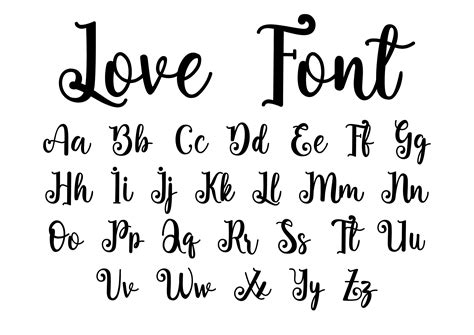 Love Font
Aa Bb Cc Dd Ee Ff Gg
Hh Ii Jj Kk Ll Mm Nn
Oo Pp Qq Rr Ss Tt Uu
Vv Ww Xx Yy Zz